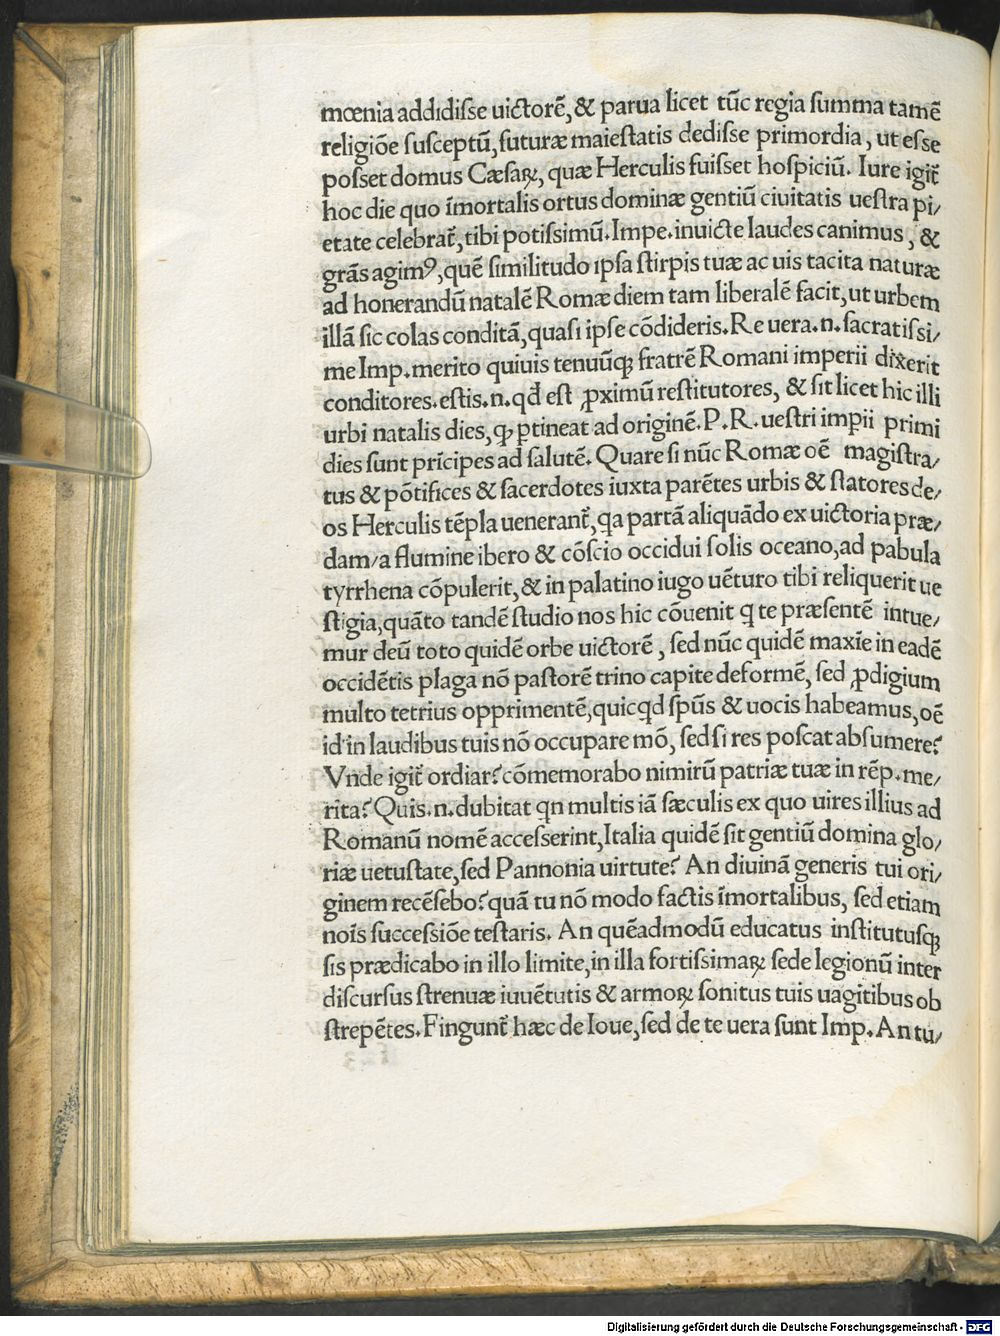 mœnia addidiſse uictorē,& parua licet tūc regia ſumma tamē
religiōe ſusceptū,futuræ maieſtatis dediſse primordia, ut eſse
poſset domus Cæſaꝝ, quæ Herculis fuiſset hoſpiciū. Iure igit̄
hoc die quo īmortalis ortus dominæ gentiū ciuitatis ueſtra pi/
etate celebrat̄,tibi potiſsimū.Impe.inuicte laudes canimus, &
grās agimꝰ,quē ſimilitudo ipſa ſtirpis tuæ ac uis tacita naturæ
ad honerandū natalē Romæ diem tam liberalē facit,ut urbem
illā ſic colas conditā,quaſi ipſe cōdideris.Re uera.n.ſacratiſsi/
me Imp.merito quiuis tenuūqꝫ fratrē Romani imperii dixerit
conditores.eſtis.n.qđ eſt ꝓximū reſtitutores, & ſit licet hic illi
urbi natalis dies,ꝙ ꝑtineat ad originē.P.R.ueſtri imꝑii primi
dies ſunt prīcipes ad ſalutē.Quare ſi nūc Romæ oē magiſtra/
tus & pōtifices & ſacerdotes iuxta parētes urbis & ſtatores de/
os Herculis tēpla uenerant̄,qa partā aliquādo ex uictoria præ/
dam/a flumine ibero & cōſcio occidui ſolis oceano,ad pabula
tyrrhena cōpulerit,& in palatino iugo uēturo tibi reliquerit ue
ſtigia,quāto tandē ſtudio nos hic cōuenit q te præſentē intue/
mur deū toto quidē orbe uictorē, ſed nūc quidē maxīe in eadē
occidētis plaga nō paſtorē trino capite deformē, ſed ꝓdigium
multo tetrius opprimentē,quicqd ſpūs & uocis habeamus,oē
id in laudibus tuis nō occupare mō, ſed ſi res poſcat abſumere?
Vnde igit̄ ordiar?cōmemorabo nimirū patriæ tuæ in rēp.me/
rita?Quis.n.dubitat qn multis iā ſæculis ex quo uires illius ad
Romanū nomē acceſserint,Italia quidē ſit gentiū domina glo/
riæ uetuſtate,ſed Pannonia uirtute? An diuinā generis tui ori/
ginem recēſebo?quā tu nō modo factis īmortalibus, ſed etiam
noīs ſucceſsiōe teſtaris. An quēadmodū educatus inſtitutuſqꝫ
ſis prædicabo in illo limite,in illa fortiſsimaꝝ ſede legionū inter
diſcurſus ſtrenuæ iuuētutis & armoꝝ ſonitus tuis uagitibus ob
ſtrepētes.Fingunt̄ hæc de Ioue,ſed de te uera ſunt Imp.An tu/
Digitalisierung gefördert durch die Deutsche Forschungsgemeinschaft - DFG